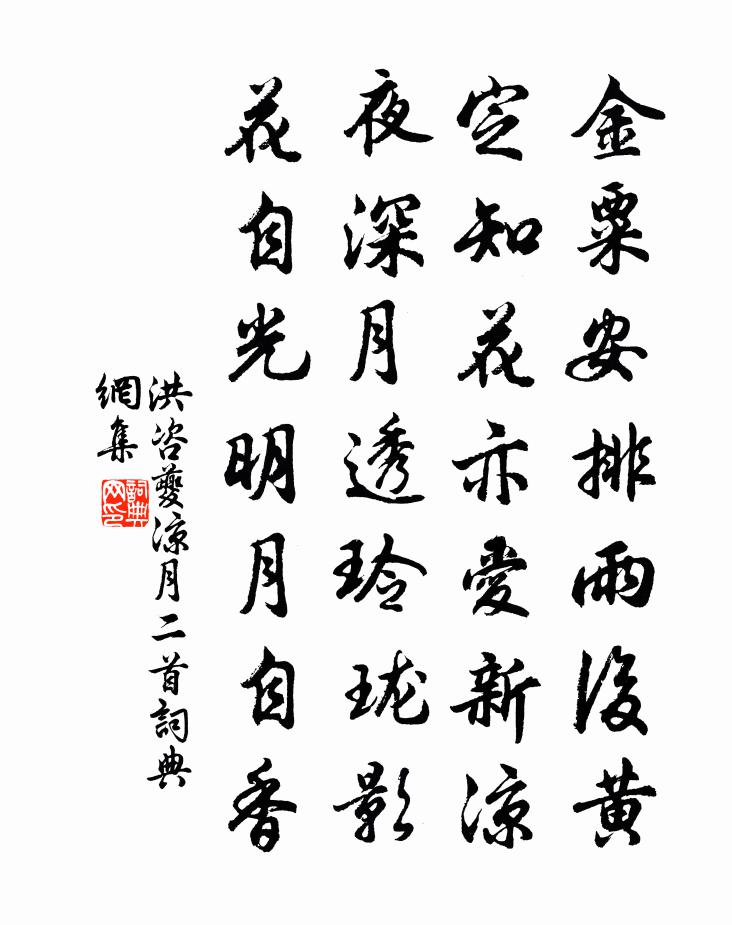 金粟安排雨後黃
定知花亦愛新涼
夜深月透玲珑影
花自光明月自香
洪咨夔涼月二首詞典
網集
詞典
网印